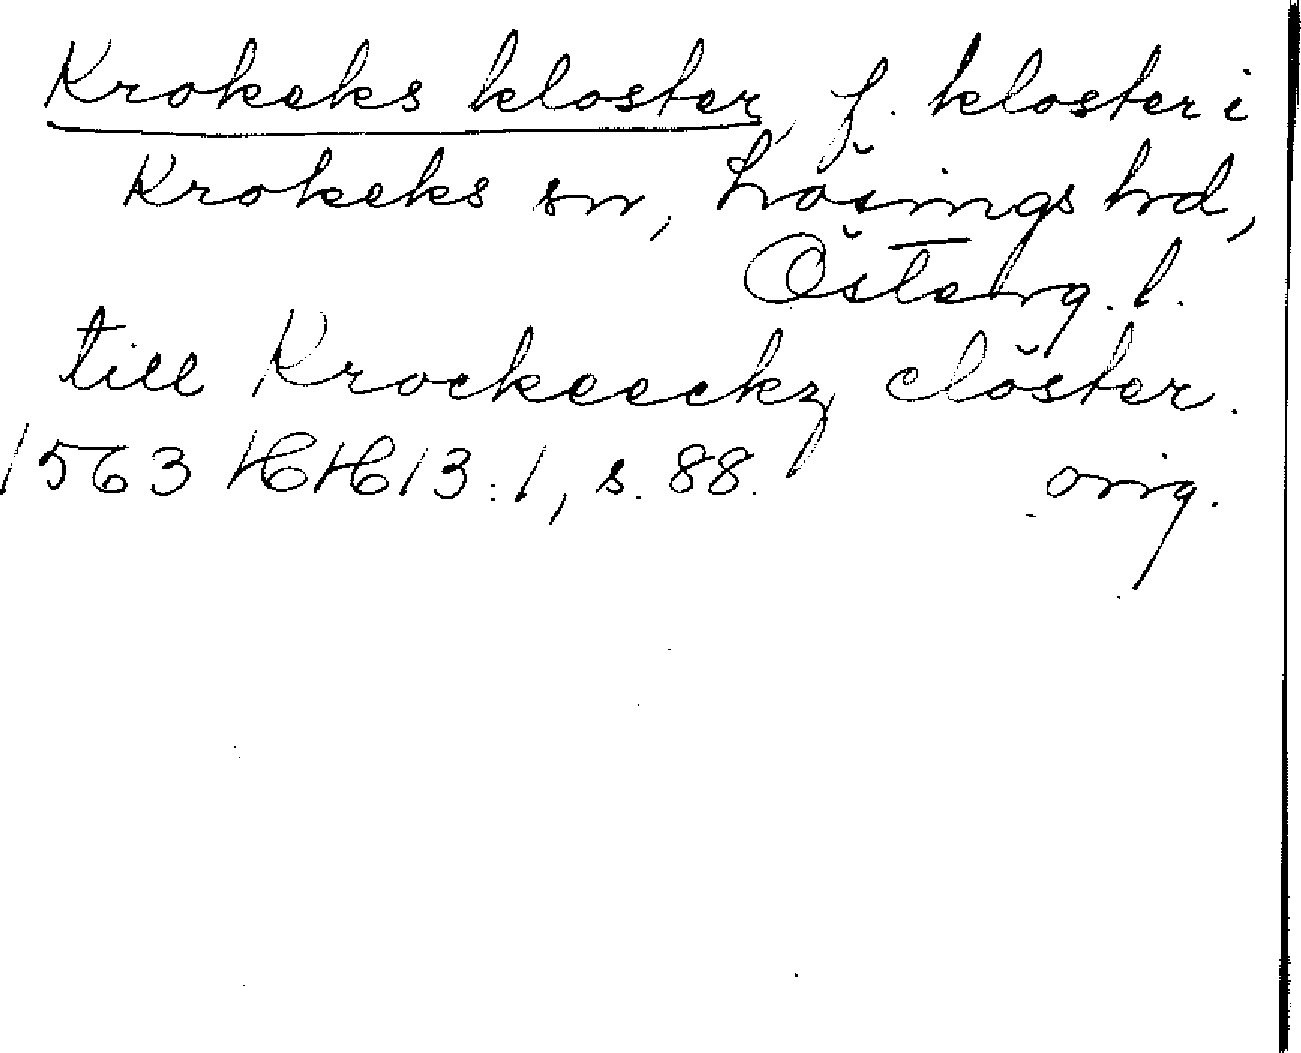 Krokeks kloster, f. kloster i
Krokeks sn, Lösings hrd,
Österg. l.
till Krockeeckz clöster.
1563 HH 13:1, s. 88. orig.